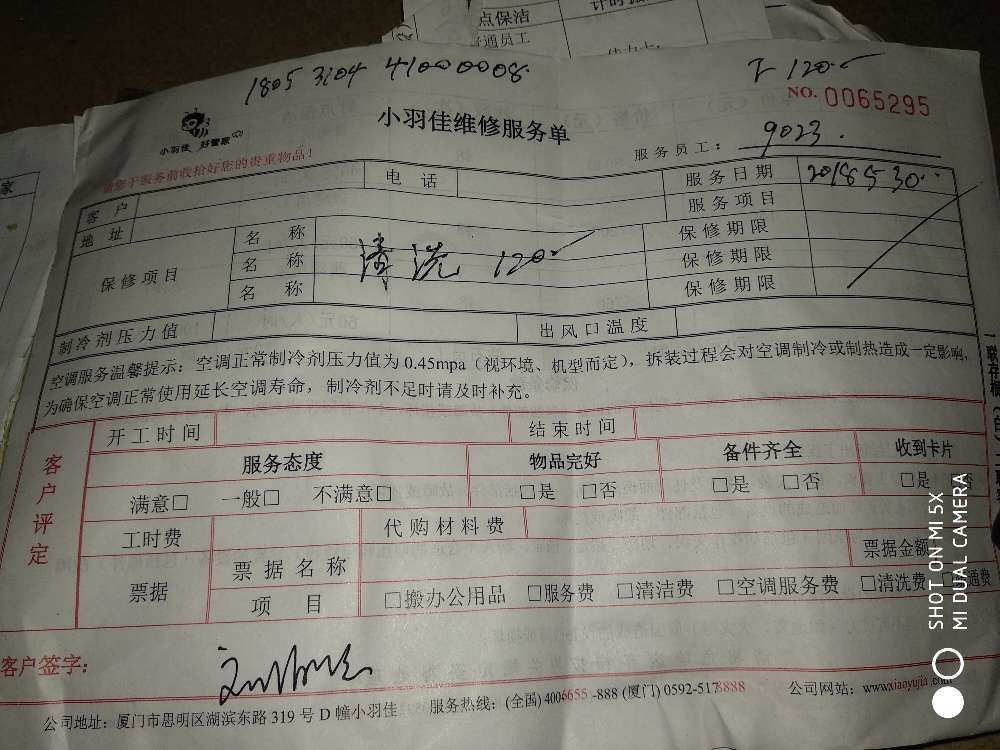 点保洁
普通员工
1805 3104 41000008.
下 120.-
NO. 0065295
小羽佳 好管家
小羽佳维修服务单
服务员工： 9023.
请您于服务前收拾好您的贵重物品！
客 户 电 话 服务日期 2018 5 30
地 址 服务项目
保修项目 名 称 保修期限
名 称 清洗 120.- 保修期限
名 称 保修期限
制冷剂压力值 出风口温度
空调服务温馨提示：空调正常制冷剂压力值为 0.45mpa（视环境、机型而定），拆装过程会对空调制冷或制热造成一定影响，
为确保空调正常使用延长空调寿命，制冷剂不足时请及时补充。
客户评定
开工时间 结束时间
服务态度 物品完好 备件齐全 收到卡片
满意□ 一般□ 不满意□ □是 □否 □是 □否 □是 □否
工时费 代购材料费
票据 票据名称 票据金额
项 目 □搬办公用品 □服务费 □清洁费 □空调服务费 □清洗费
客户签字：
公司地址：厦门市思明区湖滨东路 319 号 D 幢小羽佳 服务热线：(全国) 4006655-888 (厦门) 0592-5178888 公司网站：www.xiaoyujia.com
SHOT ON MI 5X
MI DUAL CAMERA